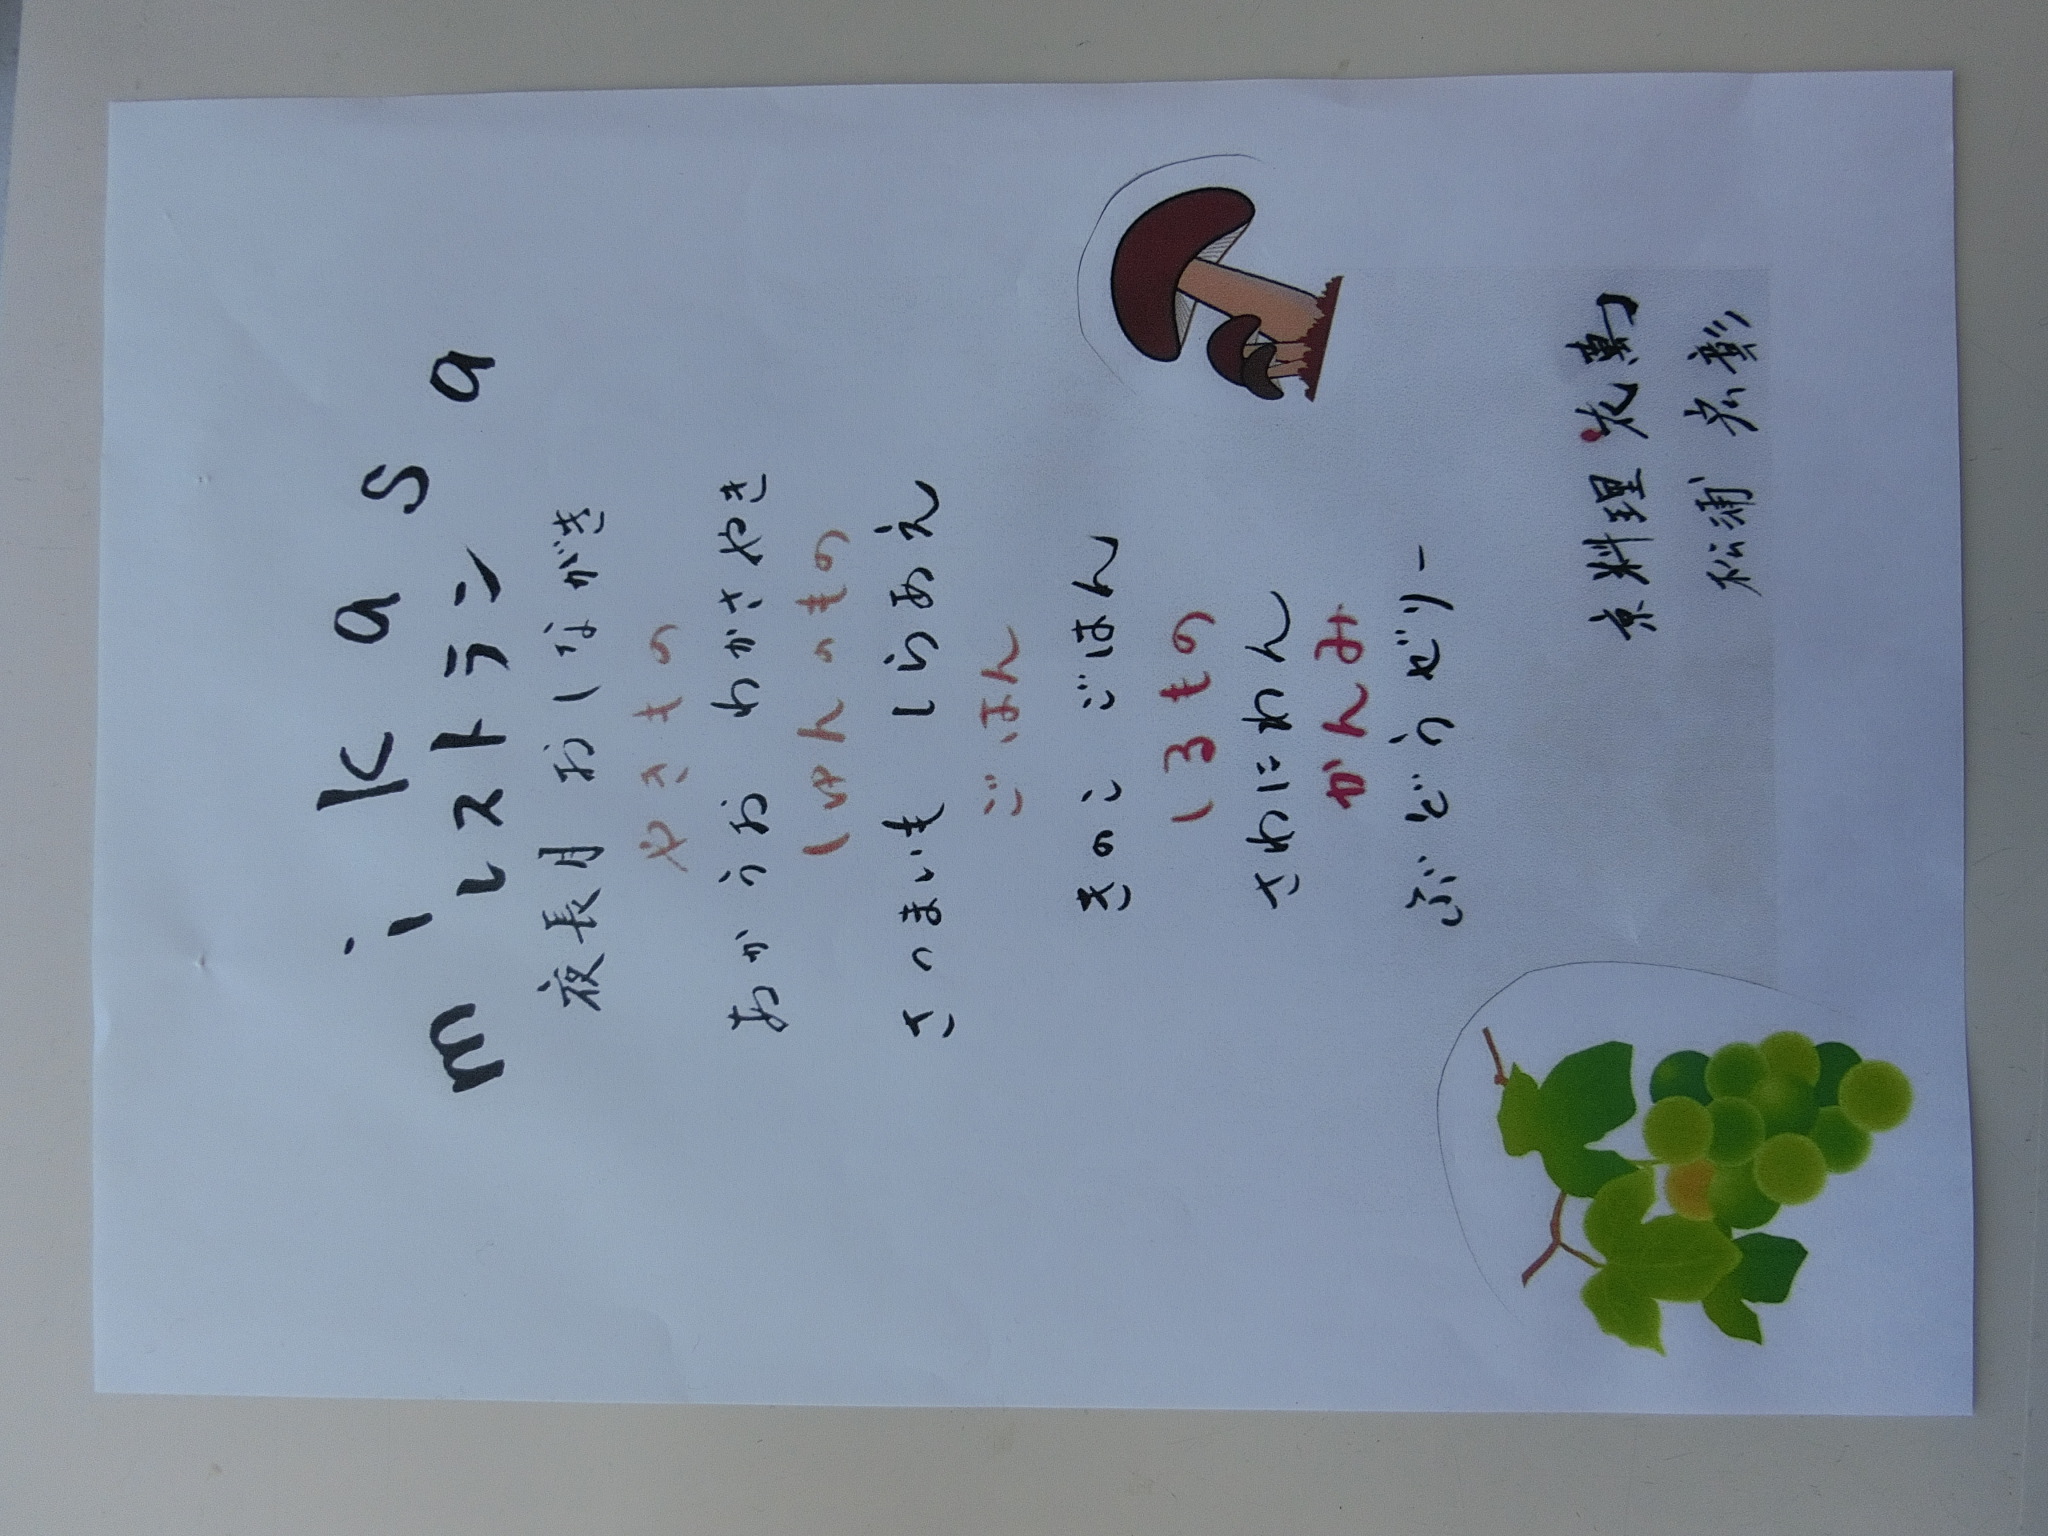 mikasa
レストラン
夜長月 おしながき
やきもの
あかうお わかさやき
しゅんのもの
さつまいも しらあえ
ごはん
きのこ ごはん
しるもの
さわにわん
かんみ
ぶどうゼリー
京料理 花萬
松浦